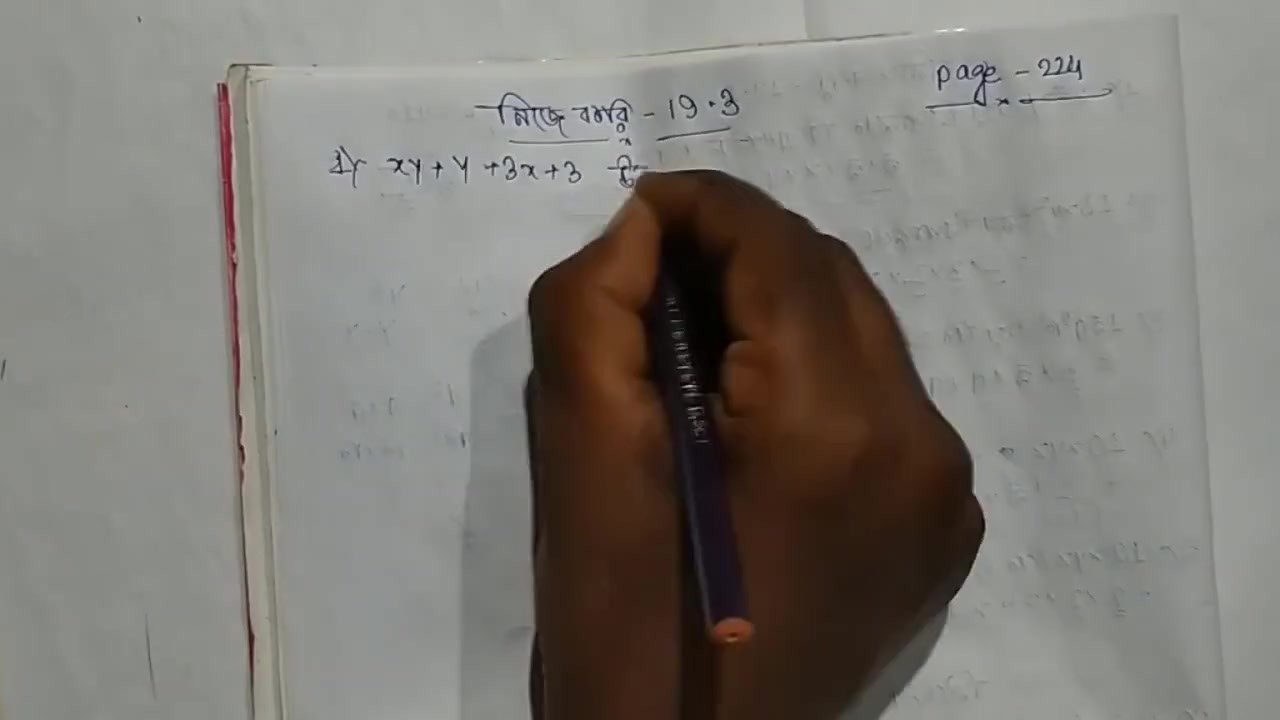 page - 224
নিজে করি - 19.3
1) xy + y + 3x + 3